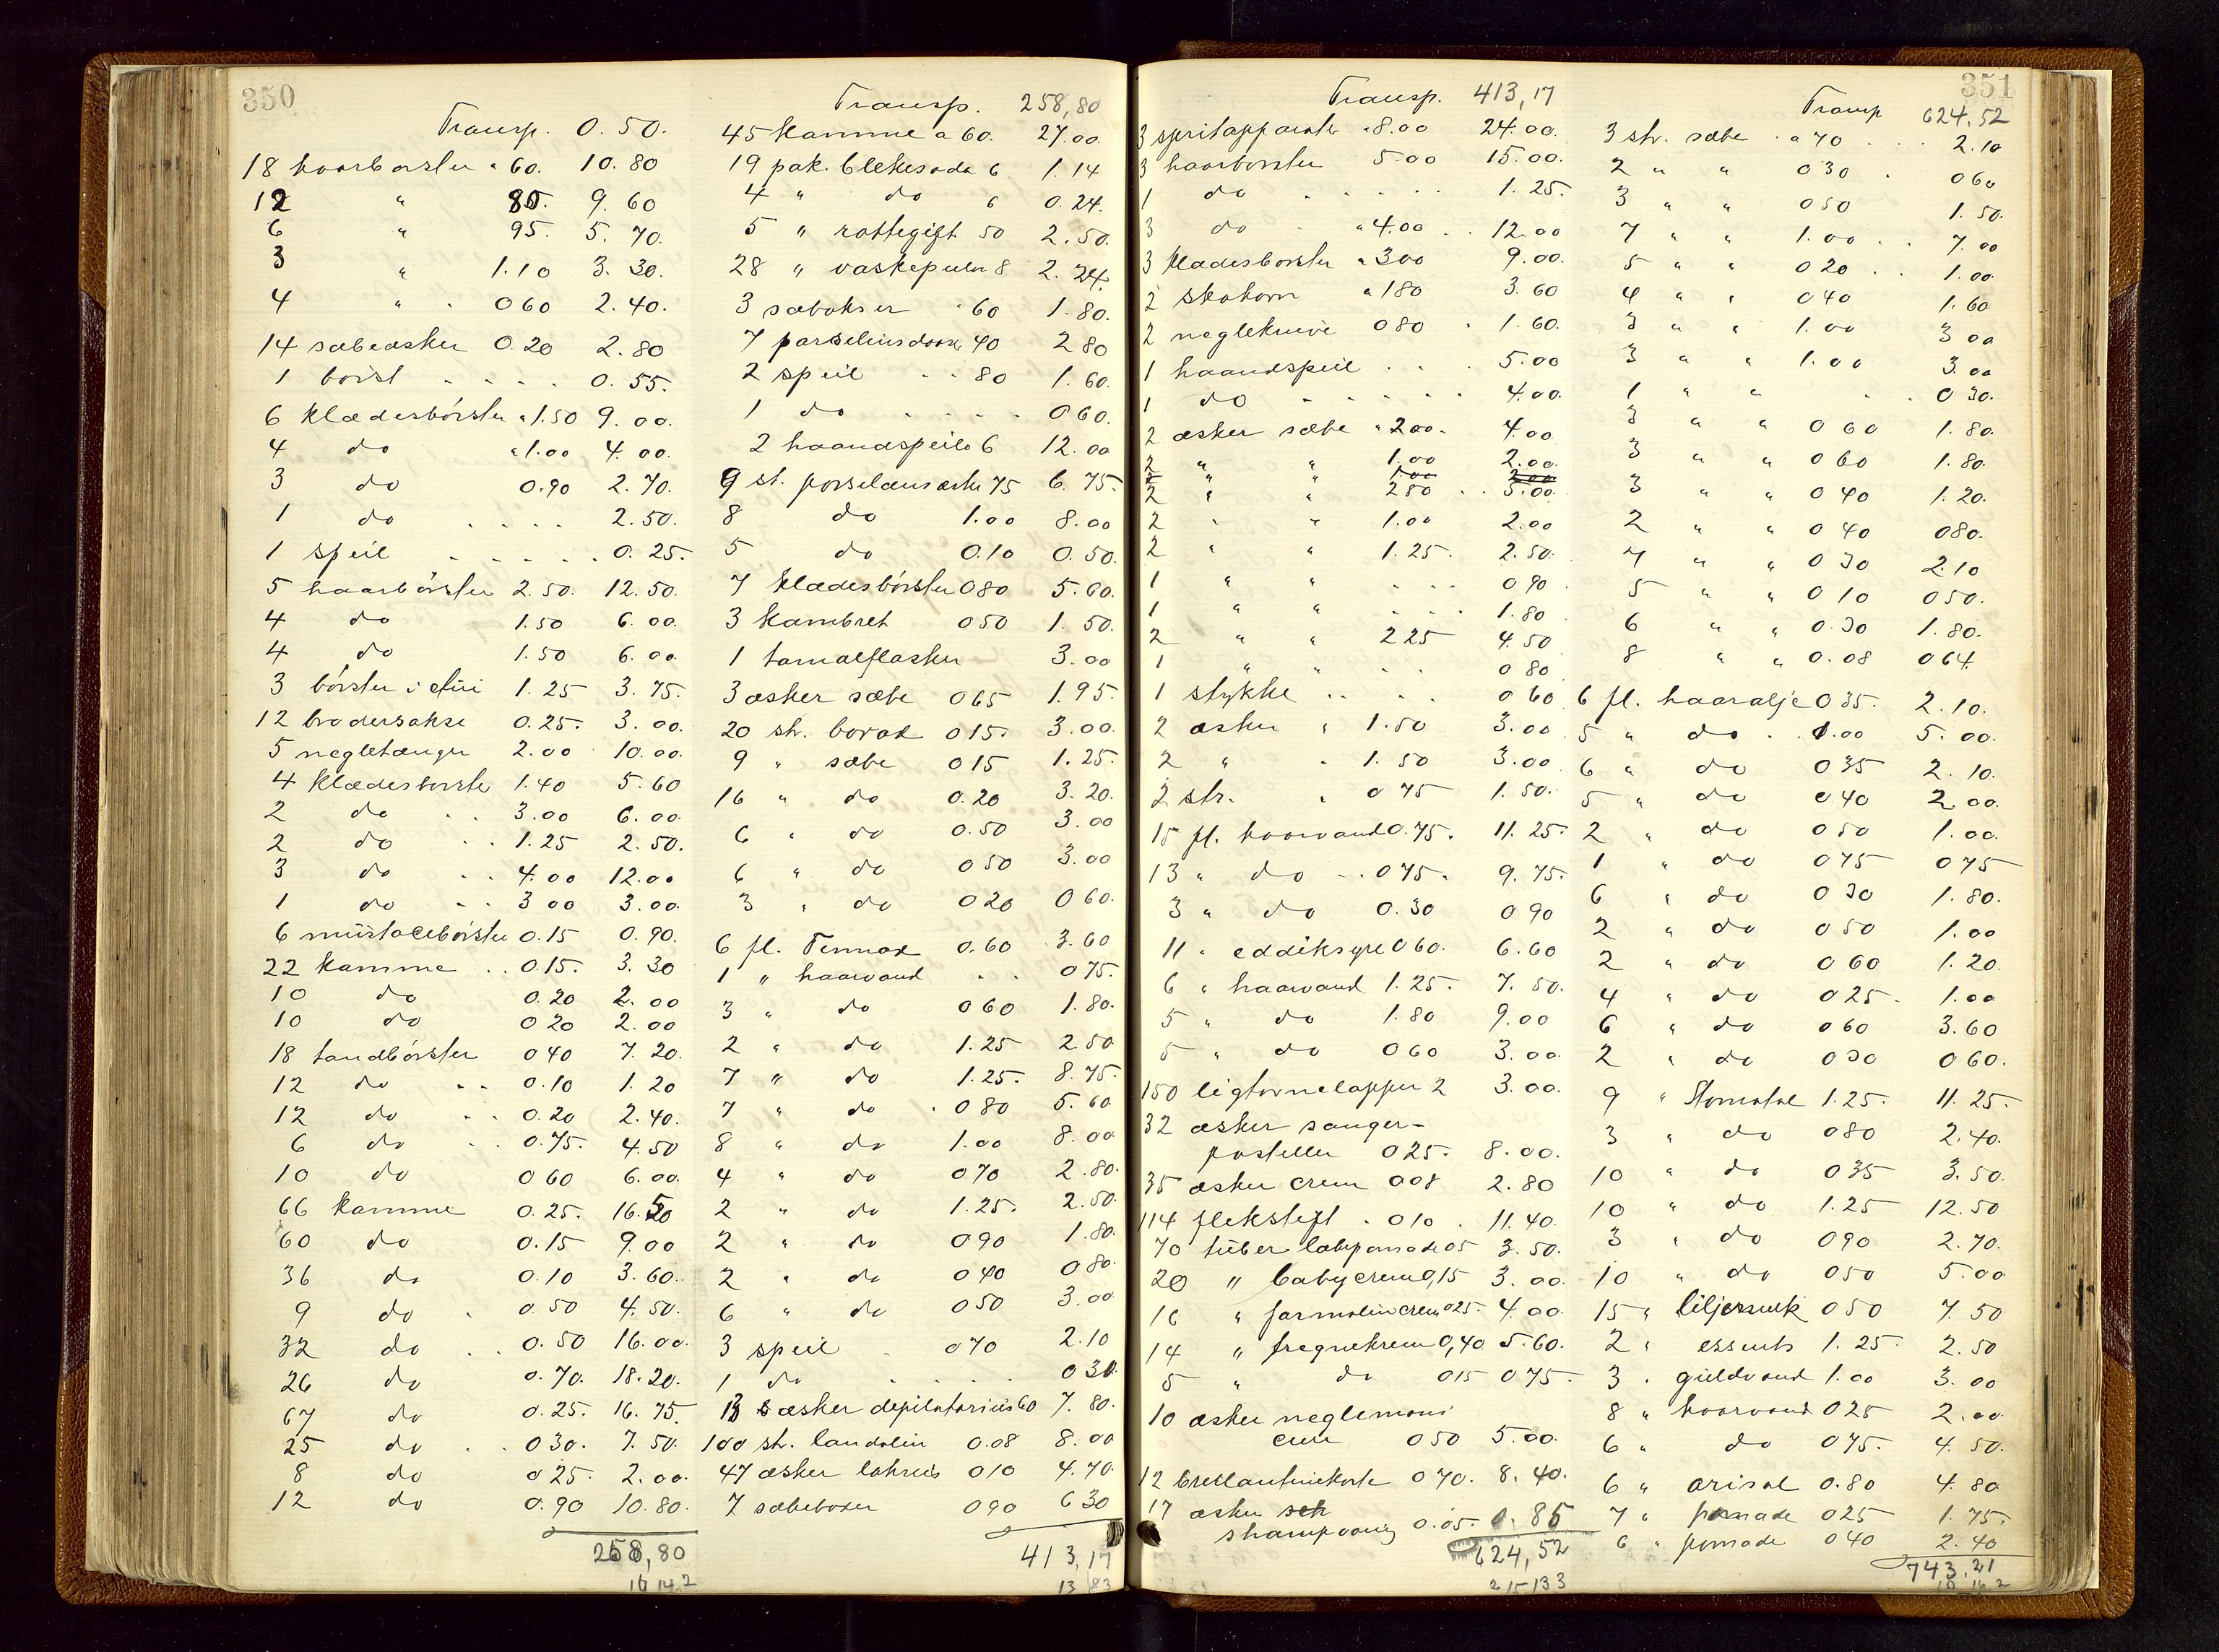 350
Transp. 0.50.
18 haarbørster " 60. 10.80
12 " 80. 9.60
6 " 95. 5.70.
3 " 1.10 3.30.
4 " 060 2.40.
14 sæbeæsker 0.20 2.80
1 børst . . . . 0.55.
6 Klædesbørster " 1.50 9.00.
4 do " 1.00 4.00.
3 do 0.90 2.70.
1 do . . . . 2.50.
1 speil . . . . . 0.25.
5 haarbørster 2.50. 12.50.
4 do 1.50 6.00.
4 do 1.50 6.00
3 børster i etui 1.25 3.75.
12 brodersakse 0.25. 3.00.
5 negletænger 2.00 10.00.
4 Klædesbørster 1.40 5.60
2 do . . 3.00 6.00.
2 do . . 1.25 2.50.
3 do . . 4.00 12.00
1 do . . 3 00 3.00.
6 mustacebørster 0.15 0.90.
22 Kamme . . 0.15. 3.30
10 do 0.20 2.00
10 do 020 2.00
18 tandbørster 040 7.20.
12 do . . 0.10 1.20
12 do . . 0.20 2.40.
6 do . . 0.75. 4.50
10 do 060 6.00.
66 Kamme 0.25. 16.50
60 do 0.15 9.00
36 do 0.10 3.60.
9 do . 0.50 4.50.
32 do . . 0.50 16.00.
26 do 0.70. 18.20.
67 do 0.25. 16.75.
25 do . . 030. 7.50.
8 do 025. 2.00.
12 do 0.90 10.80.
258,80
16 14.2
Transp. 258,80
45 Kamme a 60. 27.00.
19 pak. blekesoda 6 1.14
4 " do 6 0.24.
5 " rottegift 50 2.50.
28 " vaskepulver 8 2.24.
3 sæbokser " 60 1.80.
7 porselinsdoser 40 2 80
2 speil . . 80 1.60.
1 do . . . . 060.
2 haandspeile 6 12.00
9 st. porselænsæsker 75 6.75.
8 do 1.00 8.00
5 do 0.10 0.50.
7 Klædesbørster 080 5.60.
3 Kambret 050 1.50.
1 tamalflasker 3.00
3 æsker sæbe 065 1.95.
20 st. borax 015. 3.00.
9 " sæbe 015 1.25.
16 " do 0.20 3.20.
6 " do 0.50 3.00
6 " do 050 3.00
3 " do 020 060.
6 fl. Tennax 0.60 3.60
1 " haarvand . . 075.
3 " do 060 1.80.
2 " do 1.25 2.50
7 " do 1.25. 8.75.
7 " do . 080 5.60
8 " do 1.00 8.00
4 " do 070 2.80.
2 " do 1.25. 2.50
2 " do 090 1.80.
2 " do 040 080.
6 " do 050 3.00
3 speil . 070 2.10
1 do . . . . 030.
13 æsker depilatorius 60 7.80.
100 st. landolin 0.08 8.00
47 æsker lakris 010 4.70.
7 sæbeboxer 090 630
413,17
13 83
Transp. 413,17
3 spritapparater " 8.00 24.00.
3 haarbørster 5.00 15.00.
1 do . . . . 1.25.
3 do . " 4.00 . . 12.00
3 Klædesbørster " 300 9.00.
2 skohorn " 180 3.60
2 neglekuive 080 . 1.60.
1 haandspeil . . . 5.00
1 do . . . . . 4.00.
2 æsker sæbe " 200. 4.00
2 " " 1.00 2.00.
2 " " 1.00 2.00
2 " " 250 . . 5.00.
2 " " 1.00 2.00
2 " " 1.25. 2.50.
1 " " . . . 090
1 " " . . . 1.80
2 " " 225 4.50
1 " " . . 080
1 stykke . . . . 060
2 æsker " 1.50 3.00
2 " " 1.50 3.00
2 str. " 075 1.50.
15 fl. haarvand 0.75. 11.25.
13 " do . . 075. 9.75.
3 " do 0.30 090
11 " eddiksyre 060. 6.60
6 " haarvand 1.25. 7.50.
5 " do 1.80 9.00
5 " do 060 3.00
150 ligtornelapper 2 3.00.
32 æsker sanger-
pasteller 025. 8.00.
35 æsker crem 008 2.80
114 flekstift . 010 . 11.40.
70 tuber læbepomade 05 3.50.
20 " babycrem 0,15 3.00
16 " formolincrem 025. 4.00
14 " fregnekrem 0,40 5.60.
5 " do 015 075.
10 æsker neglemani
cure 050 5.00.
12 brillantinekorte 070. 8.40.
17 æsker
shampooing 0.05. 0.85
624,52
215133
351
Transp 624,52
3 str. sæbe . a 70 . . . 2.10
2 " " 030 . 060
3 " " 050 1.50.
7 " " 1.00 . . 7.00
5 " " 020 . . 1.00
4 " " 040 1.60
3 " " 1.00 3 00
3 " " 1.00 3.00
1 " " . . 030.
3 " " 060 1.80.
3 " " 060 1.80.
3 " " 040 1.20.
2 " " 040 080.
7 " " 030 2.10
5 " " 010 050.
6 " " 0.30 1.80.
8 " " 0.08 064.
6 fl. haarolje 035. 2.10.
5 " do . . 1.00 5.00.
6 " do 035 2.10.
5 " do 040 2.00.
2 " do 050 1.00.
1 " do 075 075
6 " do 030 1.80.
2 " do 050 1.00
2 " do 060 1.20.
4 " do 025. 1.00
6 " do 060 3.60
2 " do 030 060.
9 " Stomatol 1.25. 11.25.
3 " do 080 2.40.
10 " do 035 3.50.
10 " do 1.25 12.50
3 " do 090 2.70.
10 " do 050 5.00
15 " liljemelk 050 7.50
2 " essents 1.25. 2.50
3 " guldvand 1.00 3.00
8 " haarvand 025 2.00
6 " do 075. 4.50.
6 " arisol 0.80 4.80
7 " pomade 025 1.75.
6 " pomade 040 2.40
743,21
18 16 2